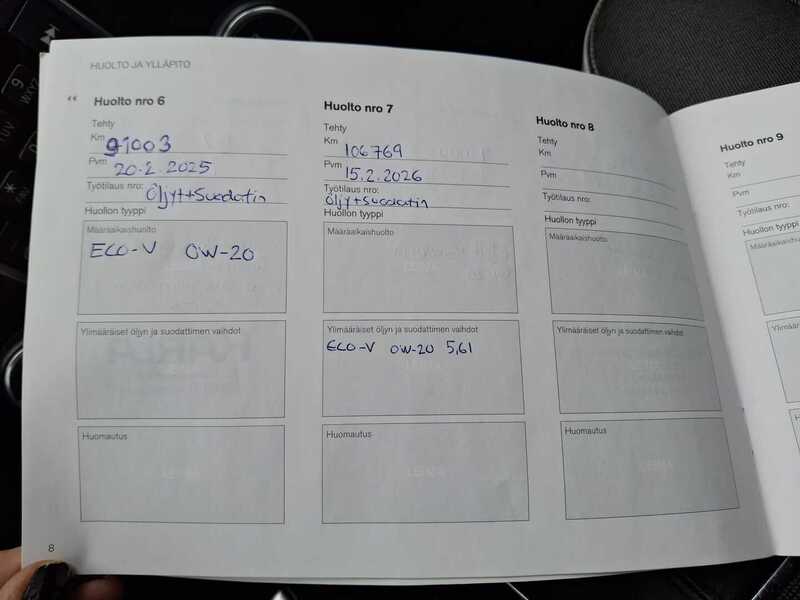 HUOLTO JA YLLÄPITO
Huolto nro 6
Tehty
Km 91003
Pvm 20.2. 2025
Työtilaus nro: Öljyt+Suodatin
Huollon tyyppi
Määräaikaishuolto
ECO-V 0W-20
Ylimääräiset öljyn ja suodattimen vaihdot
Huomautus
8
Huolto nro 7
Tehty
Km 106769
Pvm 15.2.2026
Työtilaus nro:
Öljyt+suodatin
Huollon tyyppi
Määräaikaishuolto
Ylimääräiset öljyn ja suodattimen vaihdot
ECO-V 0W-20 5,6l
Huomautus
Huolto nro 8
Tehty
Km
Pvm
Työtilaus nro:
Huollon tyyppi
Määräaikaishuolto
Ylimääräiset öljyn ja suodattimen vaihdot
Huomautus
Huolto nro 9
Tehty
Km
Pvm
Työtilaus nro:
Huollon tyyppi